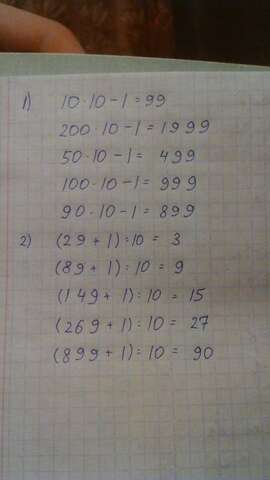 1) 10 · 10 - 1 = 99
200 · 10 - 1 = 1999
50 · 10 - 1 = 499
100 · 10 - 1 = 999
90 · 10 - 1 = 899
2) (29 + 1) : 10 = 3
(89 + 1) : 10 = 9
(149 + 1) : 10 = 15
(269 + 1) : 10 = 27
(899 + 1) : 10 = 90